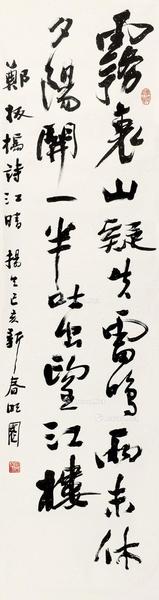 霧裹山疑失雷鳴雨未休
夕陽開一半吐出望江樓
鄭板橋詩江晴 揚之己亥新春